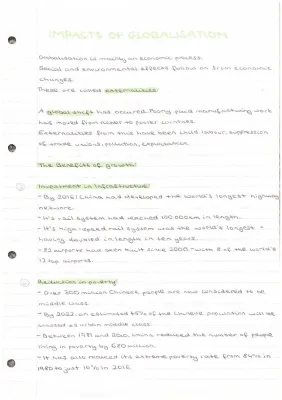 IMPACTS OF GLOBALISATION
Globalisation is mainly an economic process.
Social and environmental effects follow on from economic
changes.
These are called externalities.
A global shift has occurred. Many paid manufacturing work
has moved from richer to poorer countries.
Externalities from this have been child labour, suppression
of trade unions, pollution, exploitation.
The Benefits of growth:
Investment in infrastructure:
- By 2016, China had developed the world's longest highway
network.
- It's rail system had reached 100 000km in length.
- It's high speed rail system was the world's longest -
having doubled in length in ten years.
- 82 airports had been built since 2000 - with 8 of the world's
12 top airports.
Reduction in poverty:
- Over 300 million Chinese people are now considered to be
middle class.
- By 2022, an estimated 45% of the Chinese population will be
classed as urban middle class.
- Between 1981 and 2010, China reduced the number of people
living in poverty by 680 million.
- It has also reduced its extreme poverty rate from 84% in
1980 to just 10% in 2016.